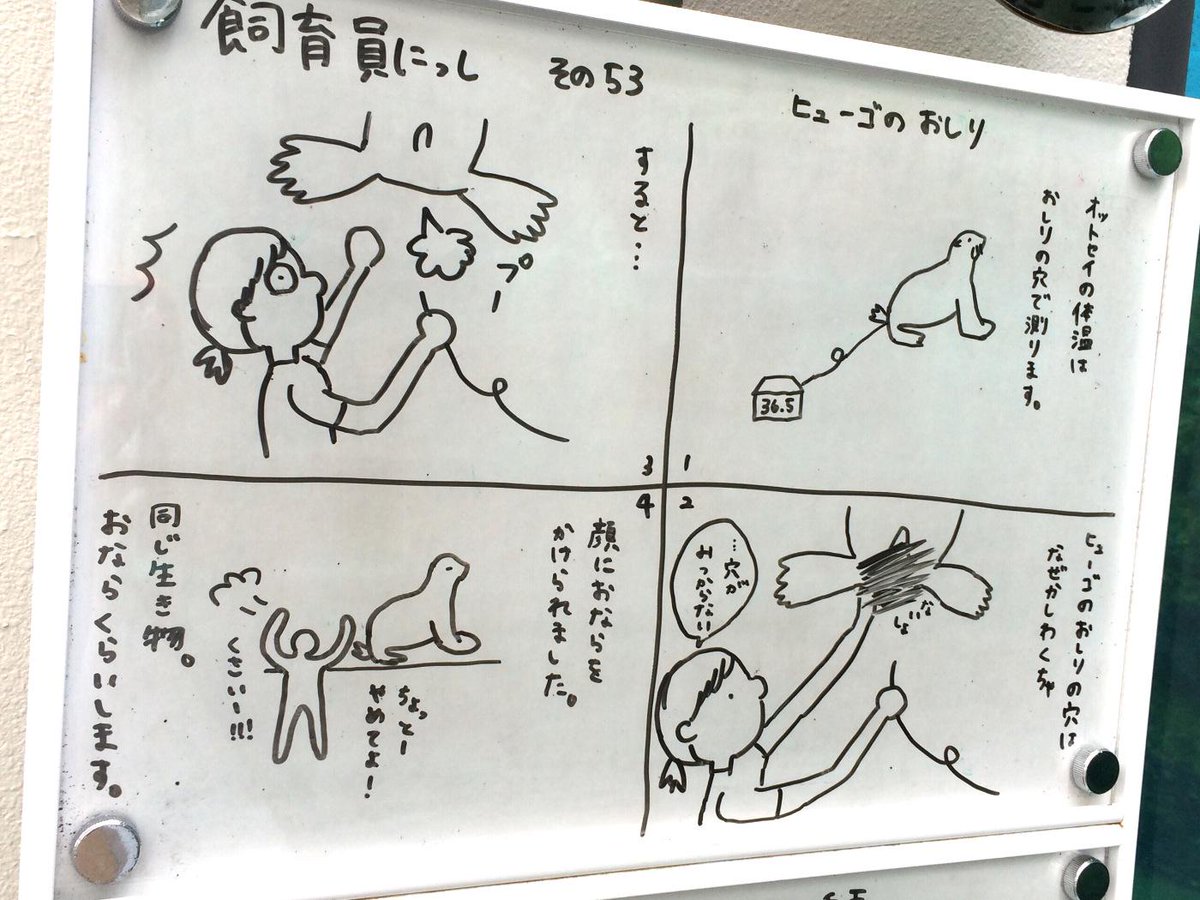 飼育員にっし その53
ヒューゴの おしり
1
オットセイの体温は
おしりの穴で測ります。
36.5
2
ヒューゴのおしりの穴は
なぜかしわくちゃ
ないしょ
…穴が
みつからない
3
すると…
プー
4
顔におならを
かけられました。
ちょっとー
やめてよ!
くさいー!!!
同じ生き物。
おならくらいします。